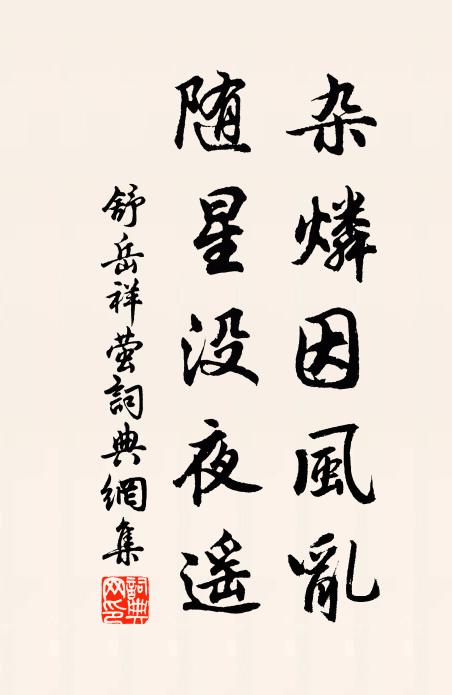 杂燐因風亂
随星没夜遥
舒岳祥萤詞典網集
詞典網印